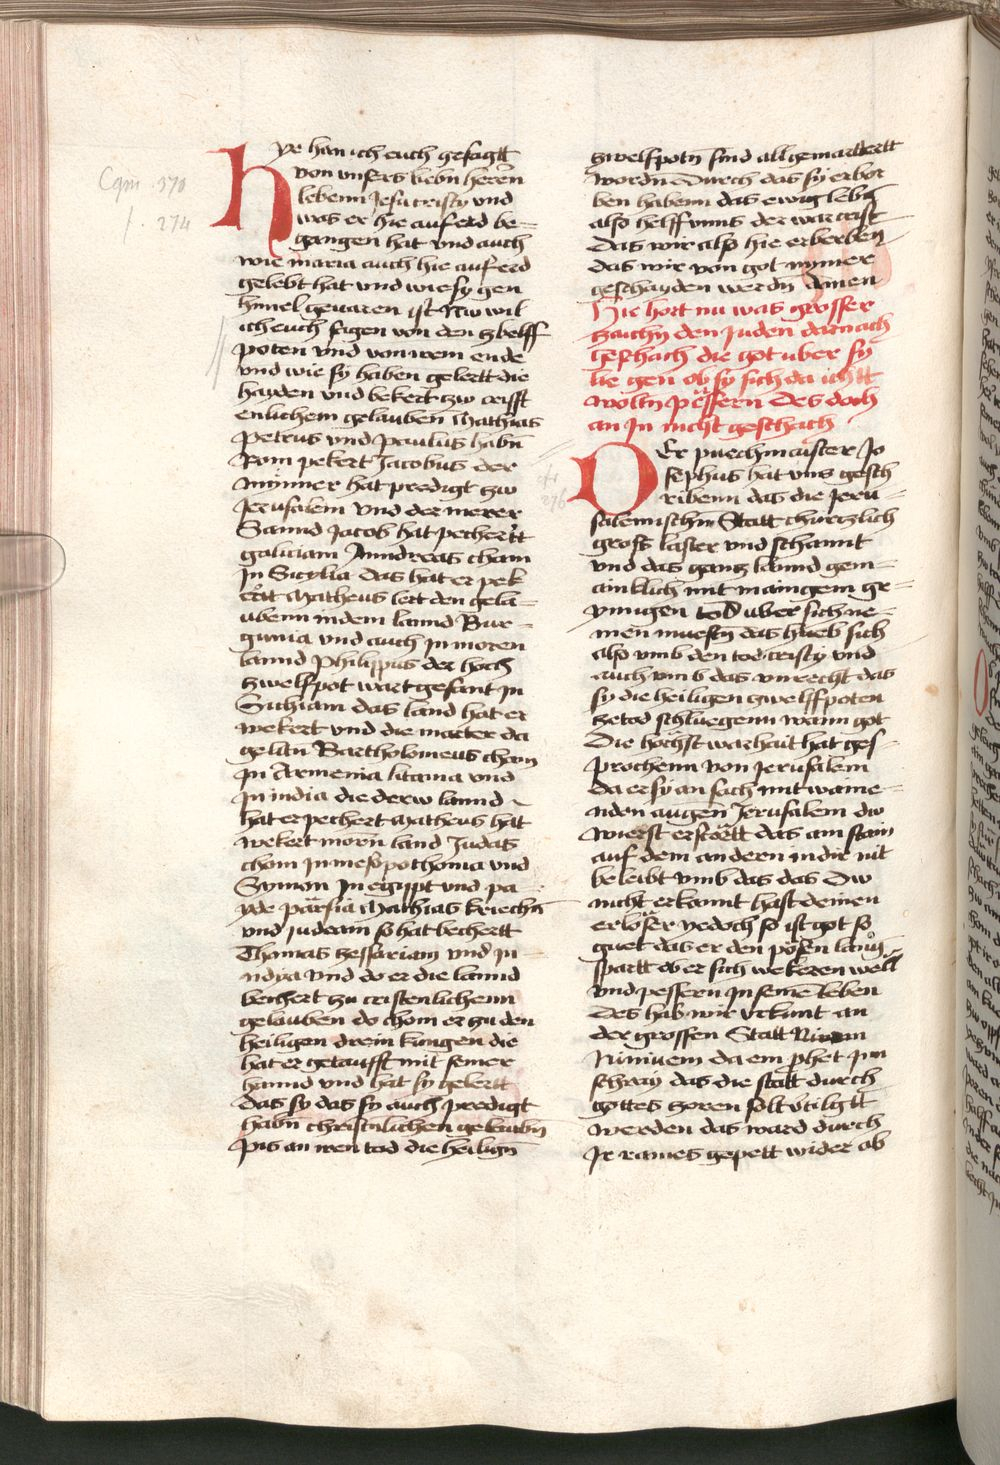 Cgm. 370
f. 274
Hye han ich euch gesagtt
von unsers liebn herren
lebenn Jesu cristy und
was er hie auf erd be=
gangen hat und auch
wie maria auch hie auf erd
gelebt hat und wie sy gen
himel gevaren ist Nw wil
ich euch sagen von den zbelff
poten und von irem ende
und wie sy haben gelertt die
hayden und bekert zw crisst
enlichem gelauben Mathias
Petrus und Paulus habn
Rom pekert Jacobus der
mynner hat predigt zw
Jerusalem und der merer
Sannd Jacob hat pechertt
galiciam Anndreas cham
In Sicylia das hat er pek
ertt Matheus lert den gela=
ubenn in dem lannd Bur=
gunia und auch In moren
lannd Philippus der hoch
zwelfpot wart gesant In
Sichiam das land hat er
wekert und die marter da
gelitn Bartholomeus cham
In Armenia litania und
In india die derw lannd
hat er pechert Matheus hat
wekert morn land Judas
chom In mesopothomia und
Symon In egippt und pa=
yde parsia Mathias kriechn
und Judeam so hat bechertt
Thomas Hessariam und In
ndya und do er die lannd
bechert zu cristenlichenn
gelauben do chom er zu den
heiligen drein kungen die
hat er getaufft mit seiner
hannd und hat sy gelertt
das sy das sy auch predigt
habn christnlichen gelaubn
pis an iren tod die heilign
zwelfpotn sind all gemartertt
wordn Durch das sy erbor
ben habenn das ewig lebn
also helff unns der war crist
das wir also hie erberben
das wir von got nymer
geschayden werdn Amen
Hie hort nu was grosser
zaichn den Juden darnach
geschach die got uber sy
lie gen ob sy sich da ichtt
woltn pessern Des doch
an In nicht geschach
Der puechmaister Jo
sephus hat uns gesch
ribenn das die Jeru=
salemischn Statt churtzlich
gross laster und schannt
und das gantz lannd gem=
ainklich mit manigem gr=
ymigen tod uber sich ne=
men muesty das hueb sich
also umb den tod cristy und
auch umb das unrecht das
sy die heiligen zwelffpoten
ze tod schluegenn wann got
Die hochst warhait hat ges=
prochenn von Jerusalem
Da er sy an sach mit waine=
nden augen Jerusalem dw
wierst erstortt das ain stain
auf dem andern in dir nit
beleibt umb das das Dw
nicht erkannt hast deinen
erloser yedoch so ist got so
guet das er den posen lang
spartt ob er sich wekeren well
und pessern In seinem leben
Des hab wir urkunt an
der grossen Statt
Niniuem da ein phet In
schray das die statt durch
gottes zoren solt vertilgtt
werden das ward durch
Ir rames gepett wider ob